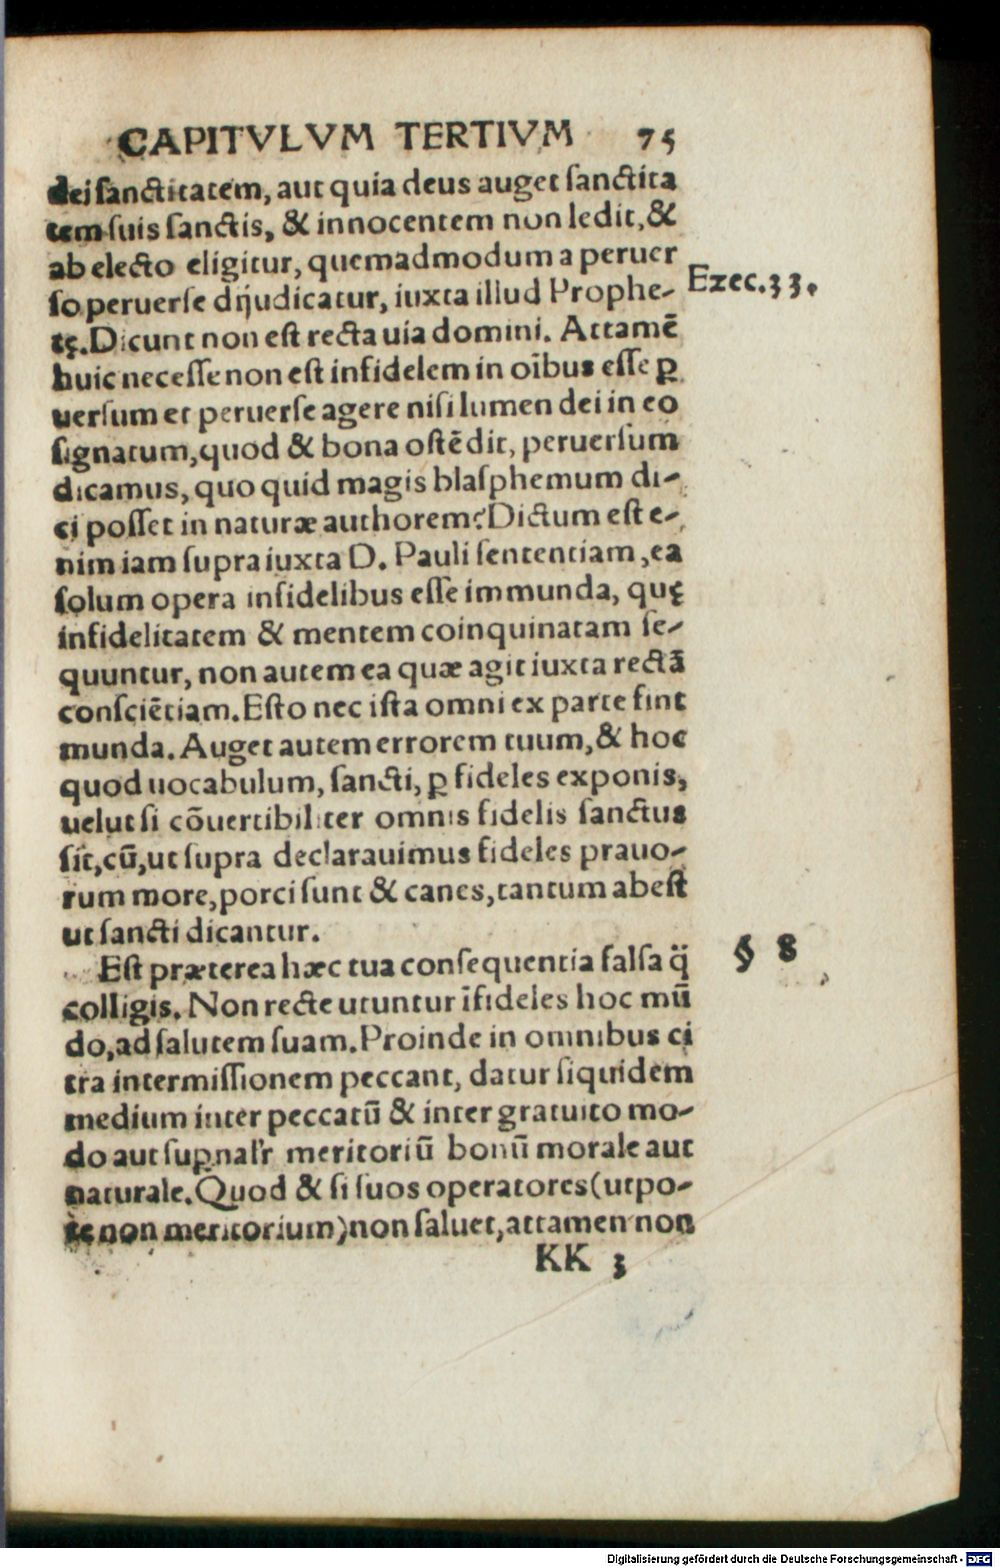 CAPITVLVM TERTIVM 75
dei sanctitatem, aut quia deus auget sanctita
tem suis sanctis, & innocentem non ledit, &
ab electo eligitur, quemadmodum a peruer
so peruerse dijudicatur, iuxta illud Prophe-
Ezec.33.
tę. Dicunt non est recta uia domini. Attamē
huic necesse non est infidelem in oībus esse ꝑ
uersum et peruerse agere nisi lumen dei in eo
signatum, quod & bona ostēdit, peruersum
dicamus, quo quid magis blasphemum di-
ci posset in naturæ authorem? Dictum est e-
nim iam supra iuxta D. Pauli sententiam, ea
solum opera infidelibus esse immunda, quę
infidelitatem & mentem coinquinatam se-
quuntur, non autem ea quæ agit iuxta rectā
consciētiam. Esto nec ista omni ex parte sint
munda. Auget autem errorem tuum, & hoc
quod uocabulum, sancti, ꝑ fideles exponis,
uelut si cōuertibiliter omnis fidelis sanctus
sit, cū, ut supra declarauimus fideles prauo-
rum more, porci sunt & canes, tantum abest
ut sancti dicantur.
Est præterea hæc tua consequentia falsa q̈
§ 8
colligis. Non recte utuntur īfideles hoc mū
do, ad salutem suam. Proinde in omnibus ci
tra intermissionem peccant, datur siquidem
medium inter peccatū & inter gratuito mo-
do aut suꝑnal'r meritoriū bonū morale aut
naturale. Quod & si suos operatores (utpo-
te non meritorium) non saluet, attamen non
KK 3
Digitalisierung gefördert durch die Deutsche Forschungsgemeinschaft - DFG